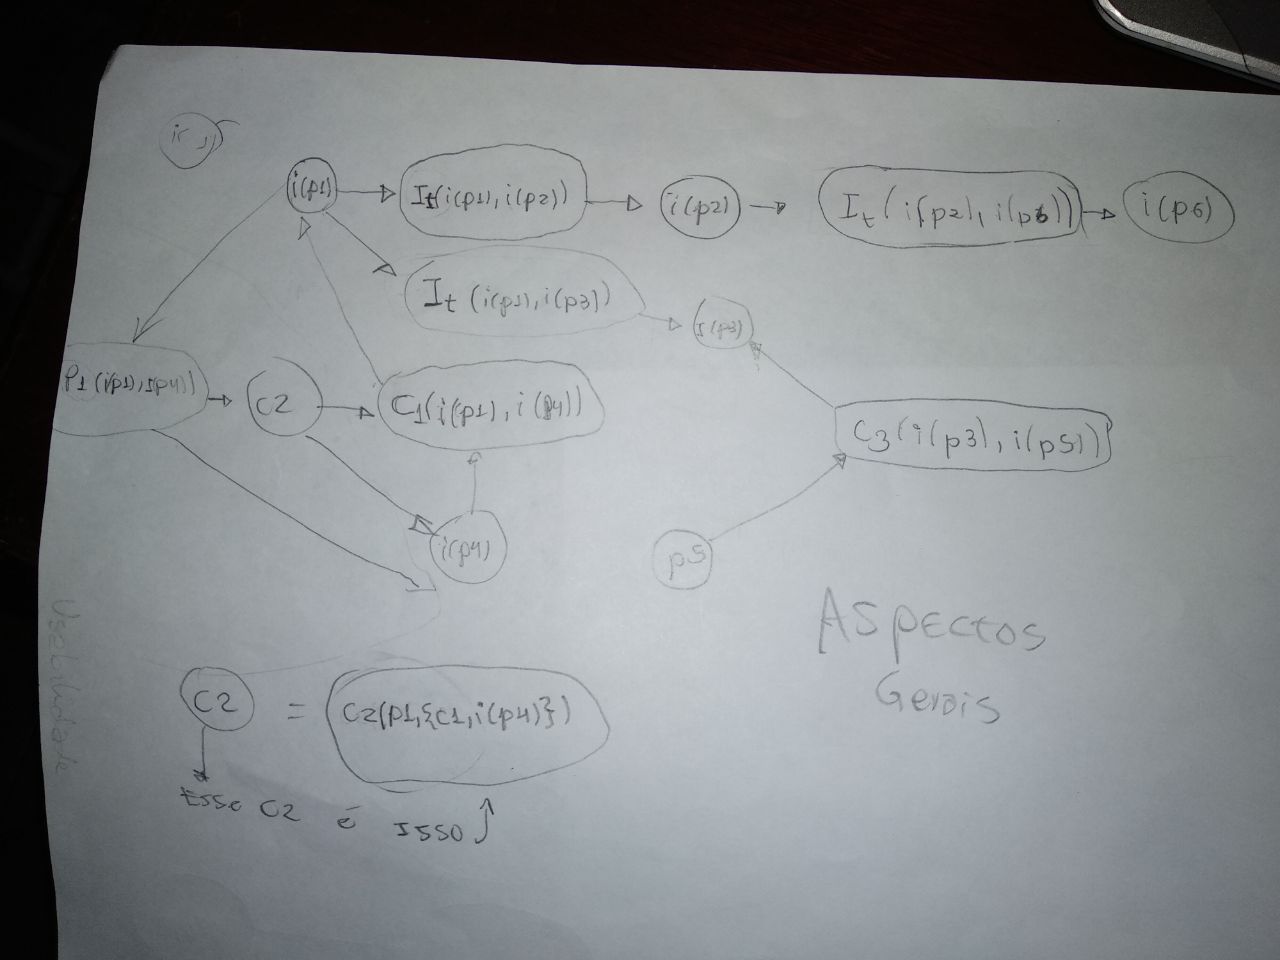 i(p1)
It(i(p1),i(p2))
i(p2)
It(i(p2),i(p6))
i(p6)
It(i(p1),i(p3))
I(p3)
P1(i(p1),I(p4))
C2
C1(i(p1),i(p4))
C3(i(p3),i(p5))
i(p4)
p5
Usabilidade
Aspectos
Gerais
C2 = C2(p1,{c1,i(p4)})
Esse C2 é Isso